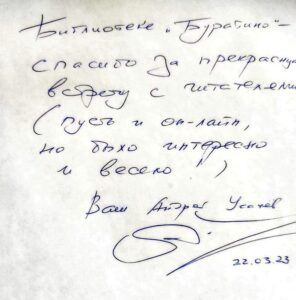 Библиотеке „Буратино"–
спасибо за прекрасную
встречу с читателями
(пусть и он-лайн,
но было интересно
и весело!)
Ваш Андрей Усачев
22.03.23